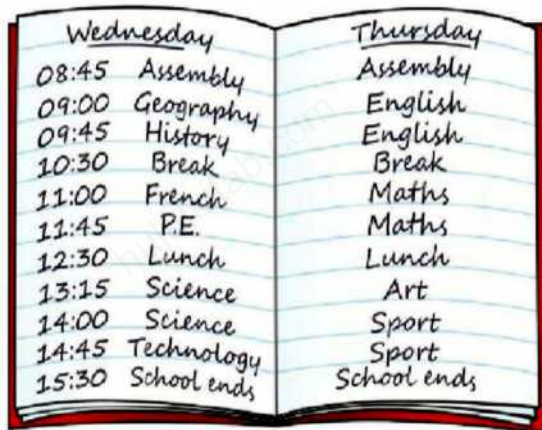 Wednesday
08:45 Assembly
09:00 Geography
09:45 History
10:30 Break
11:00 French
11:45 P.E.
12:30 Lunch
13:15 Science
14:00 Science
14:45 Technology
15:30 School ends
Thursday
Assembly
English
English
Break
Maths
Maths
Lunch
Art
Sport
Sport
School ends